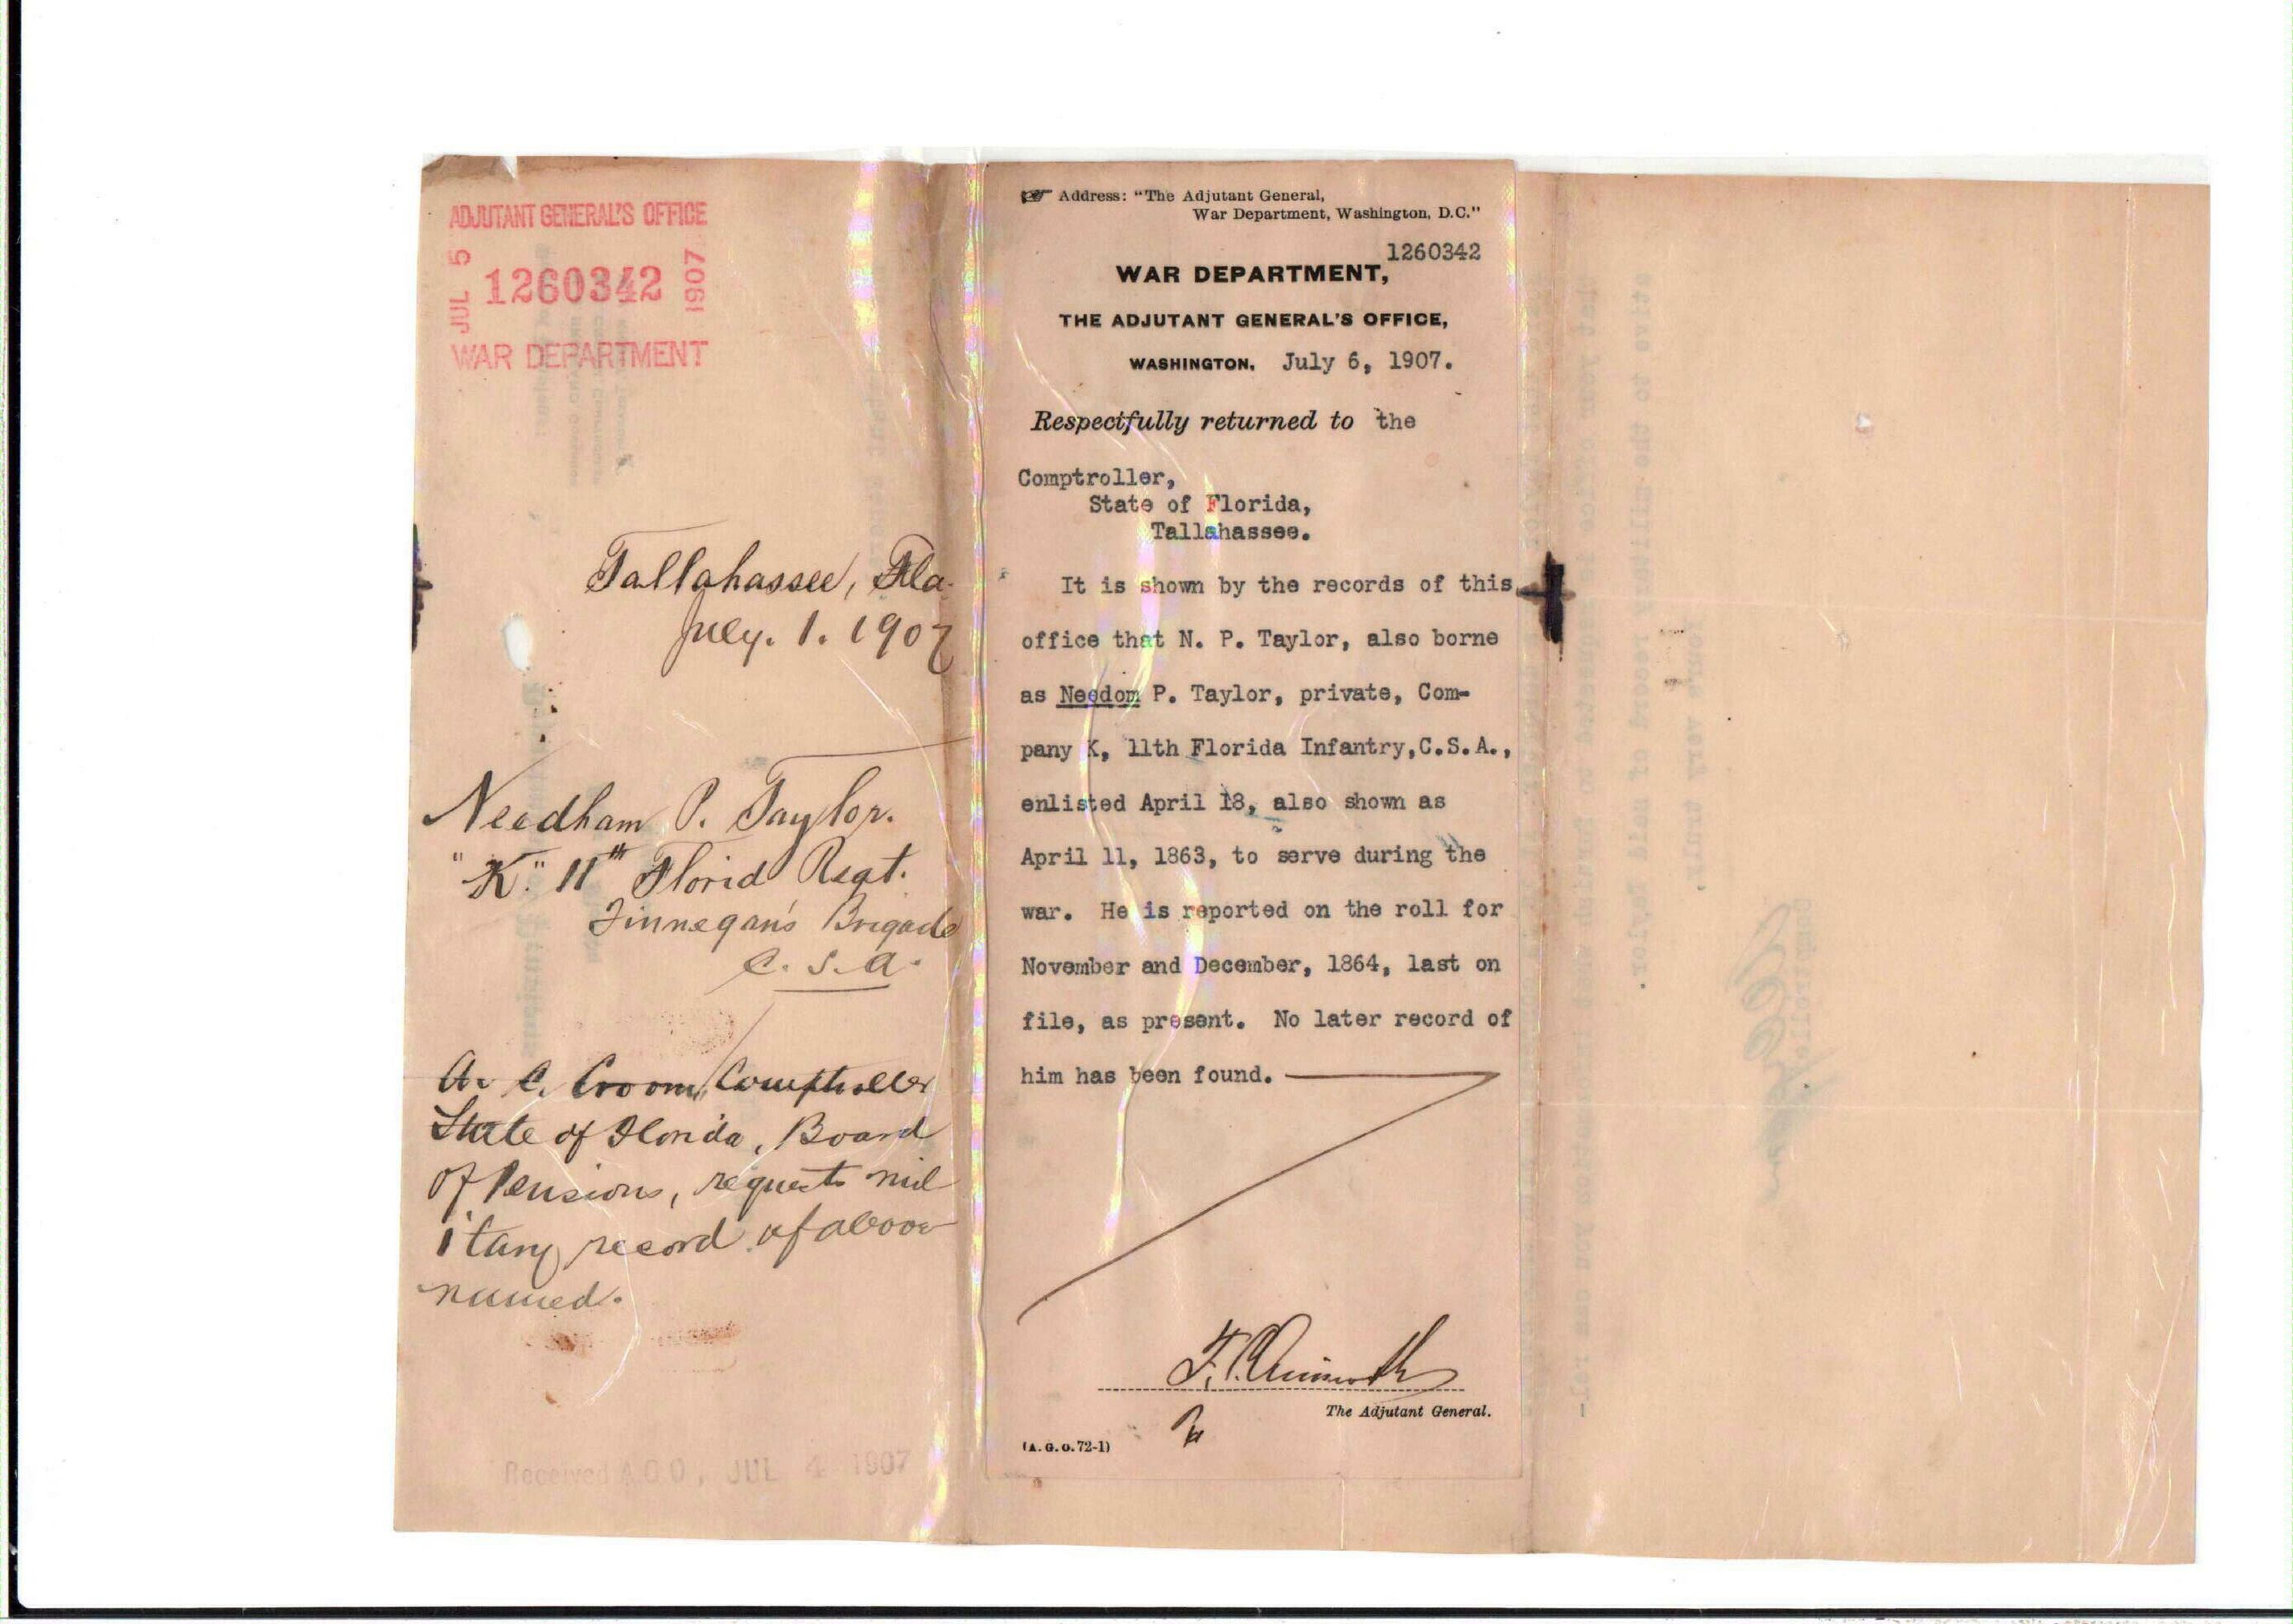 ADJUTANT GENERAL'S OFFICE
JUL 5 1260342 1907
WAR DEPARTMENT
Tallahassee, Fla.
July. 1. 1907
Needham P. Taylor.
"K." 11th Florid Regt.
Finnegan's Brigade
C. S. A.
A. C. Croom, Comptroller
State of Florida, Board
of Pensions, requests mil
itary record of above
named.
Received A.G.O., JUL 4 1907
Address: "The Adjutant General,
War Department, Washington, D.C."
1260342
WAR DEPARTMENT,
THE ADJUTANT GENERAL'S OFFICE,
WASHINGTON. July 6, 1907.
Respectfully returned to the
Comptroller,
State of Florida,
Tallahassee.
It is shown by the records of this
office that N. P. Taylor, also borne
as Needom P. Taylor, private, Com-
pany K, 11th Florida Infantry,C.S.A.,
enlisted April 18, also shown as
April 11, 1863, to serve during the
war. He is reported on the roll for
November and December, 1864, last on
file, as present. No later record of
him has been found.
F. C. Ainsworth
The Adjutant General.
(A. G. O. 72-1)